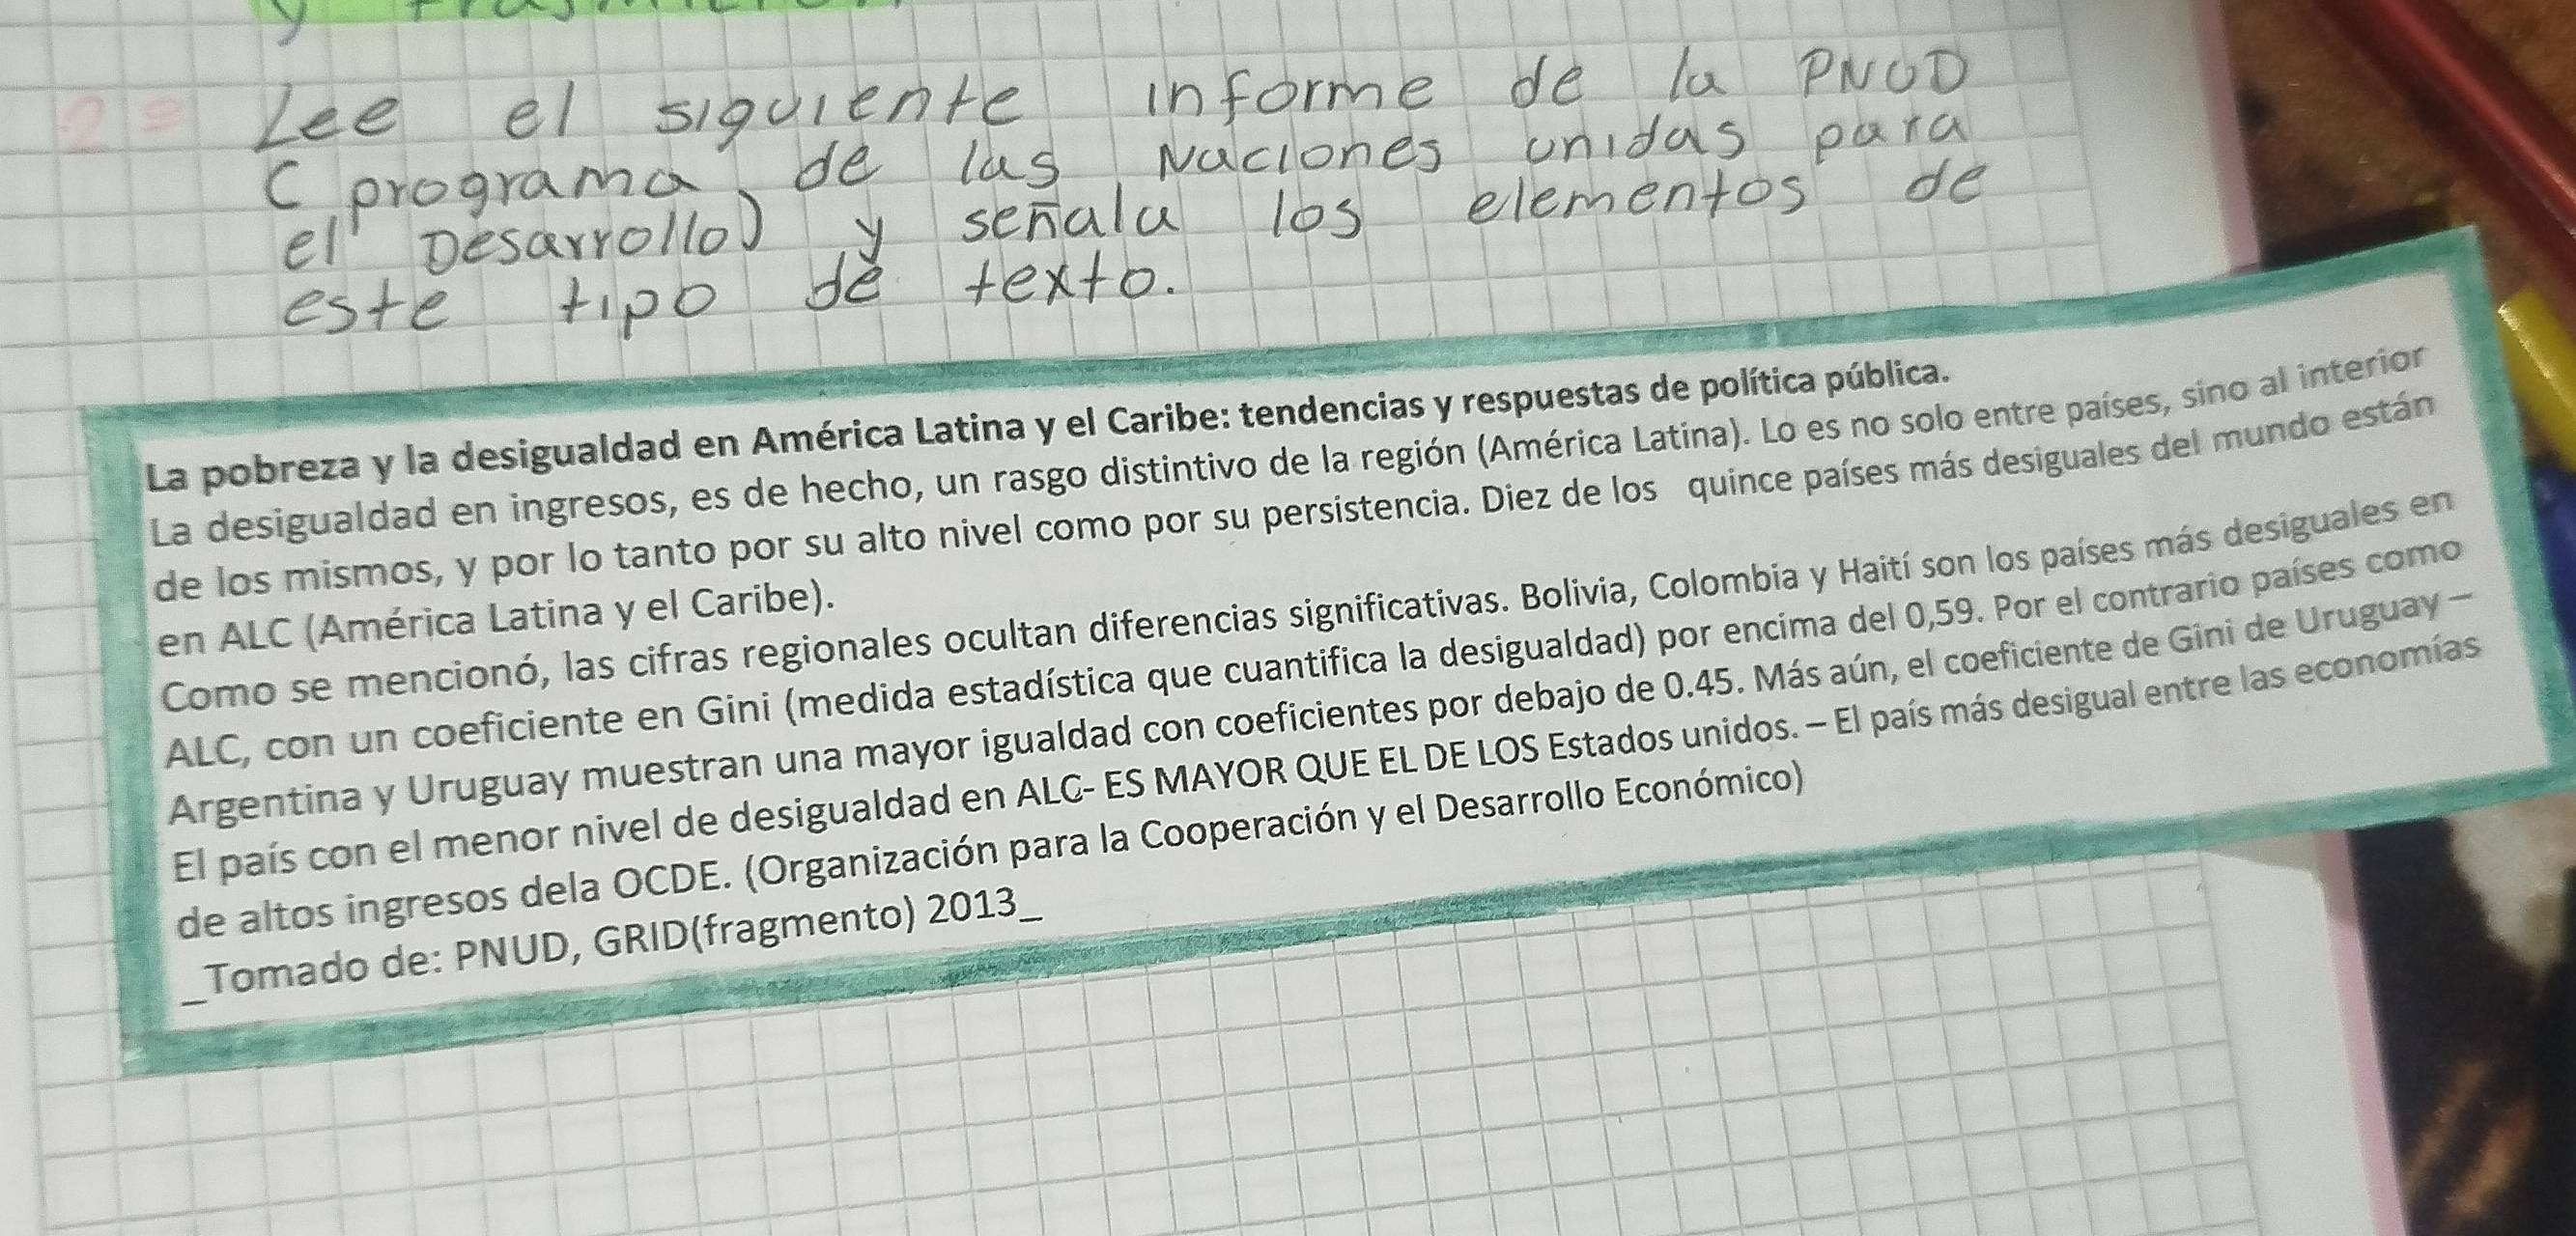 2=
Lee el siguiente informe de la PNUD
( programa de las Naciones unidas para
el Desarrollo) y señala los elementos de
este tipo de texto.
La pobreza y la desigualdad en América Latina y el Caribe: tendencias y respuestas de política pública.
La desigualdad en ingresos, es de hecho, un rasgo distintivo de la región (América Latina). Lo es no solo entre países, sino al interior
de los mismos, y por lo tanto por su alto nivel como por su persistencia. Diez de los quince países más desiguales del mundo están
en ALC (América Latina y el Caribe).
Como se mencionó, las cifras regionales ocultan diferencias significativas. Bolivia, Colombia y Haití son los países más desiguales en
ALC, con un coeficiente en Gini (medida estadística que cuantifica la desigualdad) por encima del 0,59. Por el contrario países como
Argentina y Uruguay muestran una mayor igualdad con coeficientes por debajo de 0.45. Más aún, el coeficiente de Gini de Uruguay –
El país con el menor nivel de desigualdad en ALC- ES MAYOR QUE EL DE LOS Estados unidos. – El país más desigual entre las economías
de altos ingresos dela OCDE. (Organización para la Cooperación y el Desarrollo Económico)
_Tomado de: PNUD, GRID(fragmento) 2013_